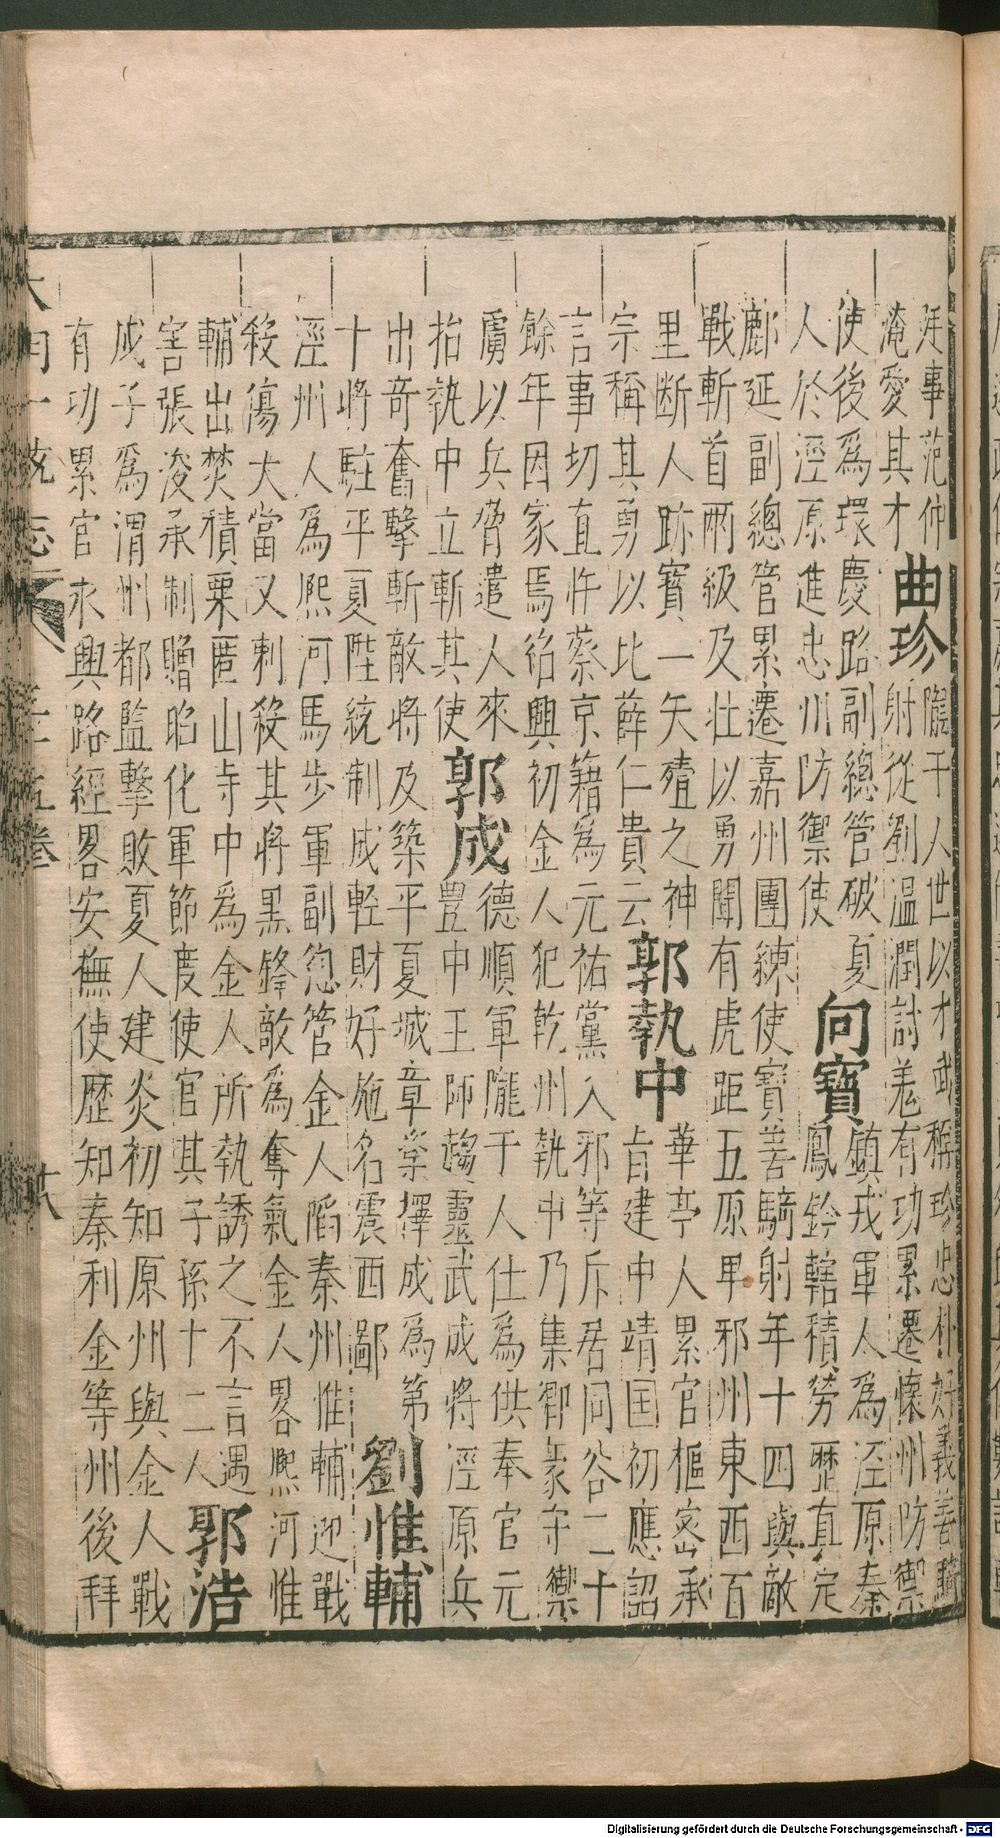 廷事范仲
淹愛其才
曲珍
隴干人世以才武稱珍忠朴好義善騎
射從劉溫潤討羌有功累遷懷州防禦
使後爲環慶路副總管破夏
人於涇原進忠州防禦使
向寶
鎮戎軍人爲涇原秦
鳳鈐轄積勞歷真定
鄜延副總管累遷嘉州團練使寶善騎射年十四與敵
戰斬首兩級及壯以勇聞有虎距五原卑邪州東西百
里断人跡寶一矢殪之神
宗稱其勇以比薛仁貴云
郭執中
華亭人累官樞密承
旨建中靖国初應詔
言事切直忤蔡京籍爲元祐黨入邪等斥居同谷二十
餘年因家焉紹興初金人犯乾州執中乃集鄉豪守禦
虜以兵脅遣人來
招執中立斬其使
郭成
德順軍隴干人仕爲供奉官元
豐中王師趨靈武成將涇原兵
出奇奮擊斬敵將及築平夏城章楶擇成爲第
十將駐平夏陞統制成輕財好施名震西鄙
劉惟輔
涇州人爲熙河馬步軍副總管金人陷秦州惟輔迎戰
殺傷大當又刺殺其將黑鋒敵爲奪氣金人畧熙河惟
輔出焚積粟匿山寺中爲金人所執誘之不言遇
害張浚承制贈昭化軍節度使官其子孫十二人
郭浩
成子爲渭州都監擊敗夏人建炎初知原州與金人戰
有功累官永興路經畧安撫使歷知秦利金等州後拜
大明一統志 三十五卷 廿八
Digitalisierung gefördert durch die Deutsche Forschungsgemeinschaft - DFG